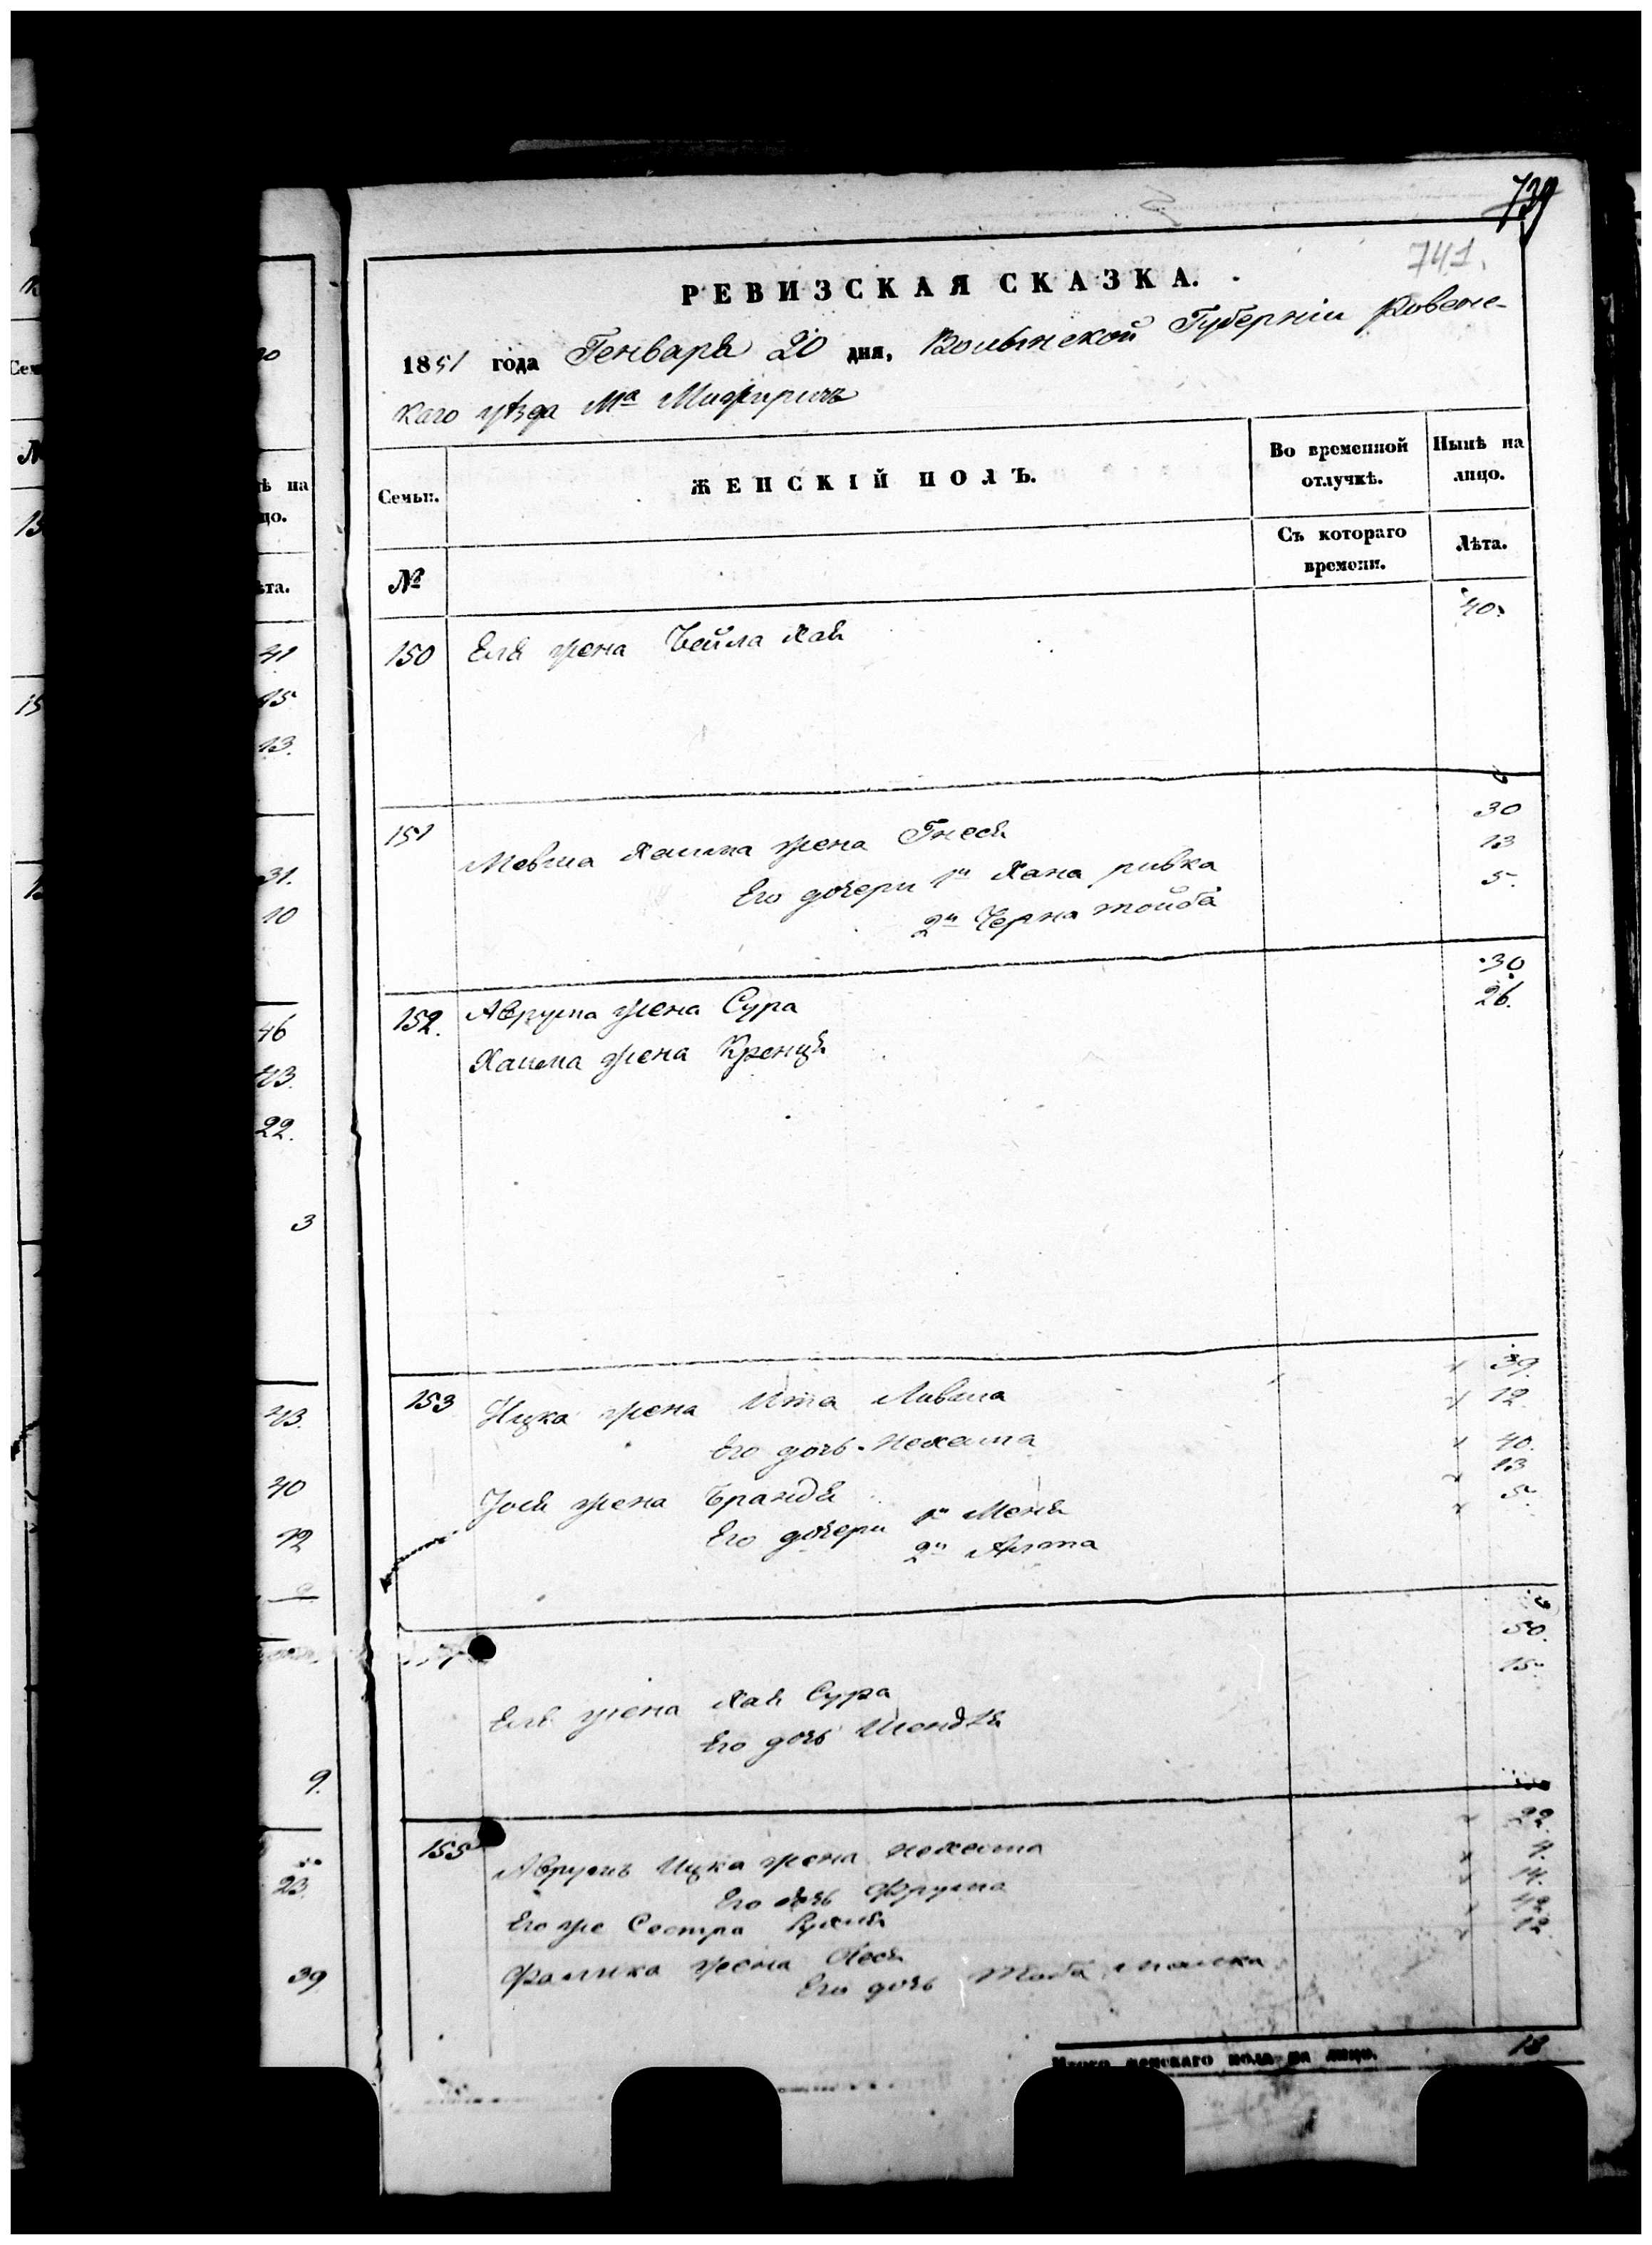 739
741.
РЕВИЗСКАЯ СКАЗКА.
1851 года Генваря 20 дня, Волынской Губерніи Ровенс-
каго уѣзда Мᵃ Межиричъ
Семьи. ЖЕНСКІЙ ПОЛЪ. Во временной отлучкѣ. Нынѣ на лицо.
№ Съ котораго времени. Лѣта.
150 Еля жена Бейла Хая 40.
151 Мевша Хаима жена Гнеся 30
Его дочери 1я Хана ривка 13
2я Черна тойба 5.
152. Аврума жена Сура 30
Хаима жена Кренця 26.
153 Ицка жена Ита Ливша 39.
Его дочь Нехама 12.
Йося жена Брандя 40.
Его дочери 1я Меня 13
2я Алта 5.
Еля жена Хая Сура 50.
Его дочь Шендля 15.
155 Аврумъ Ицка жена Нехама 22.
Его дочь Фрума 4.
Его же Сестра Рухля 14.
Фалика жена Песя 42.
Его дочь Тоба 12.
Итого женскаго пола на лицо. 18
ѣ на
цо.
ѣта.
41
15
13.
31.
10
46
43.
22.
3
43.
40
12
9.
23.
39